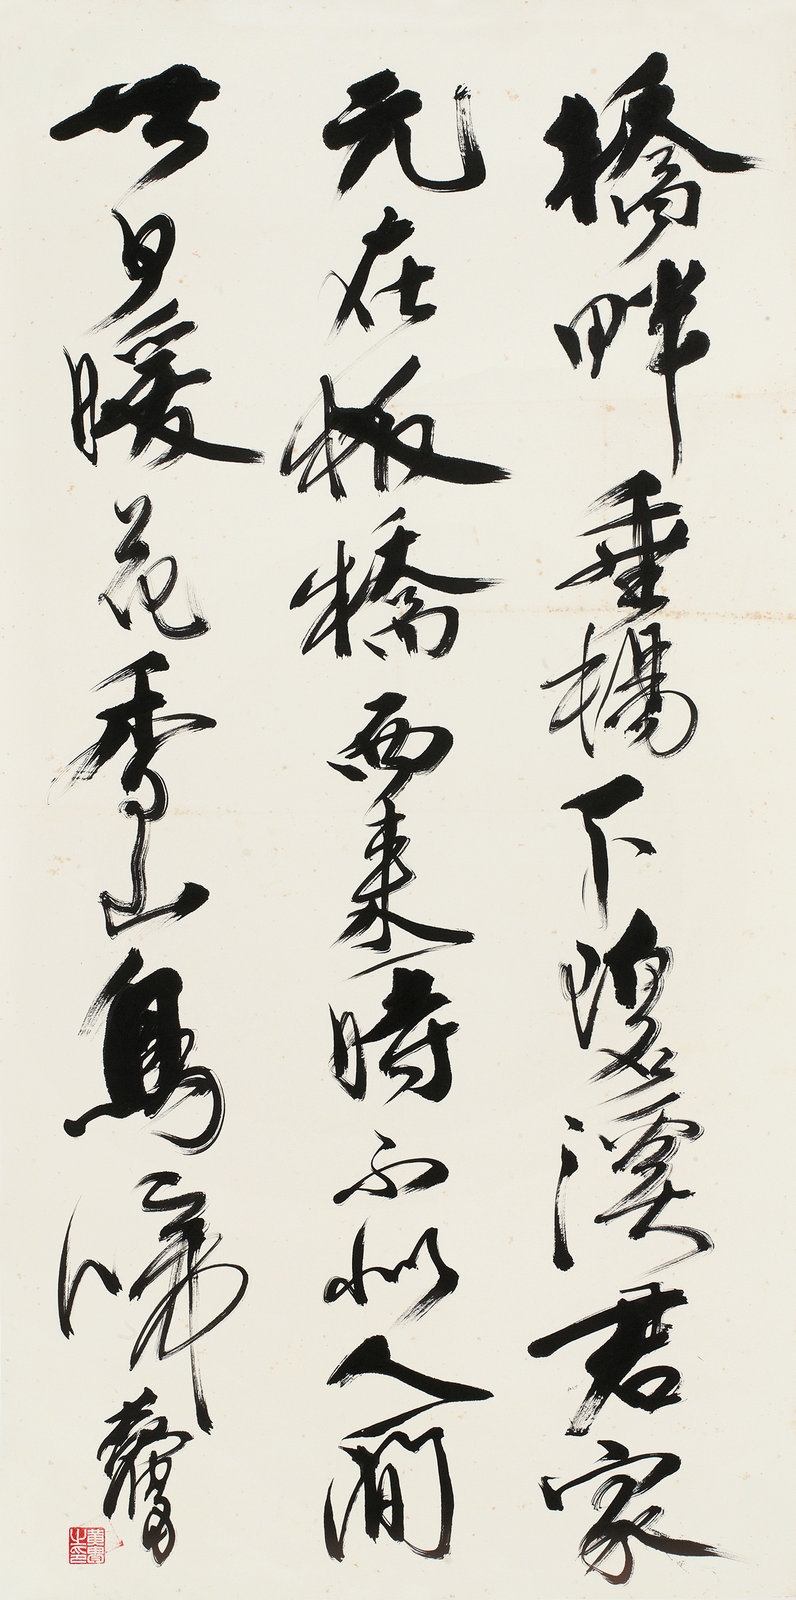 橋畔垂楊下碧溪君家
元在板橋西来時不似人間
世日暖花香山鳥啼